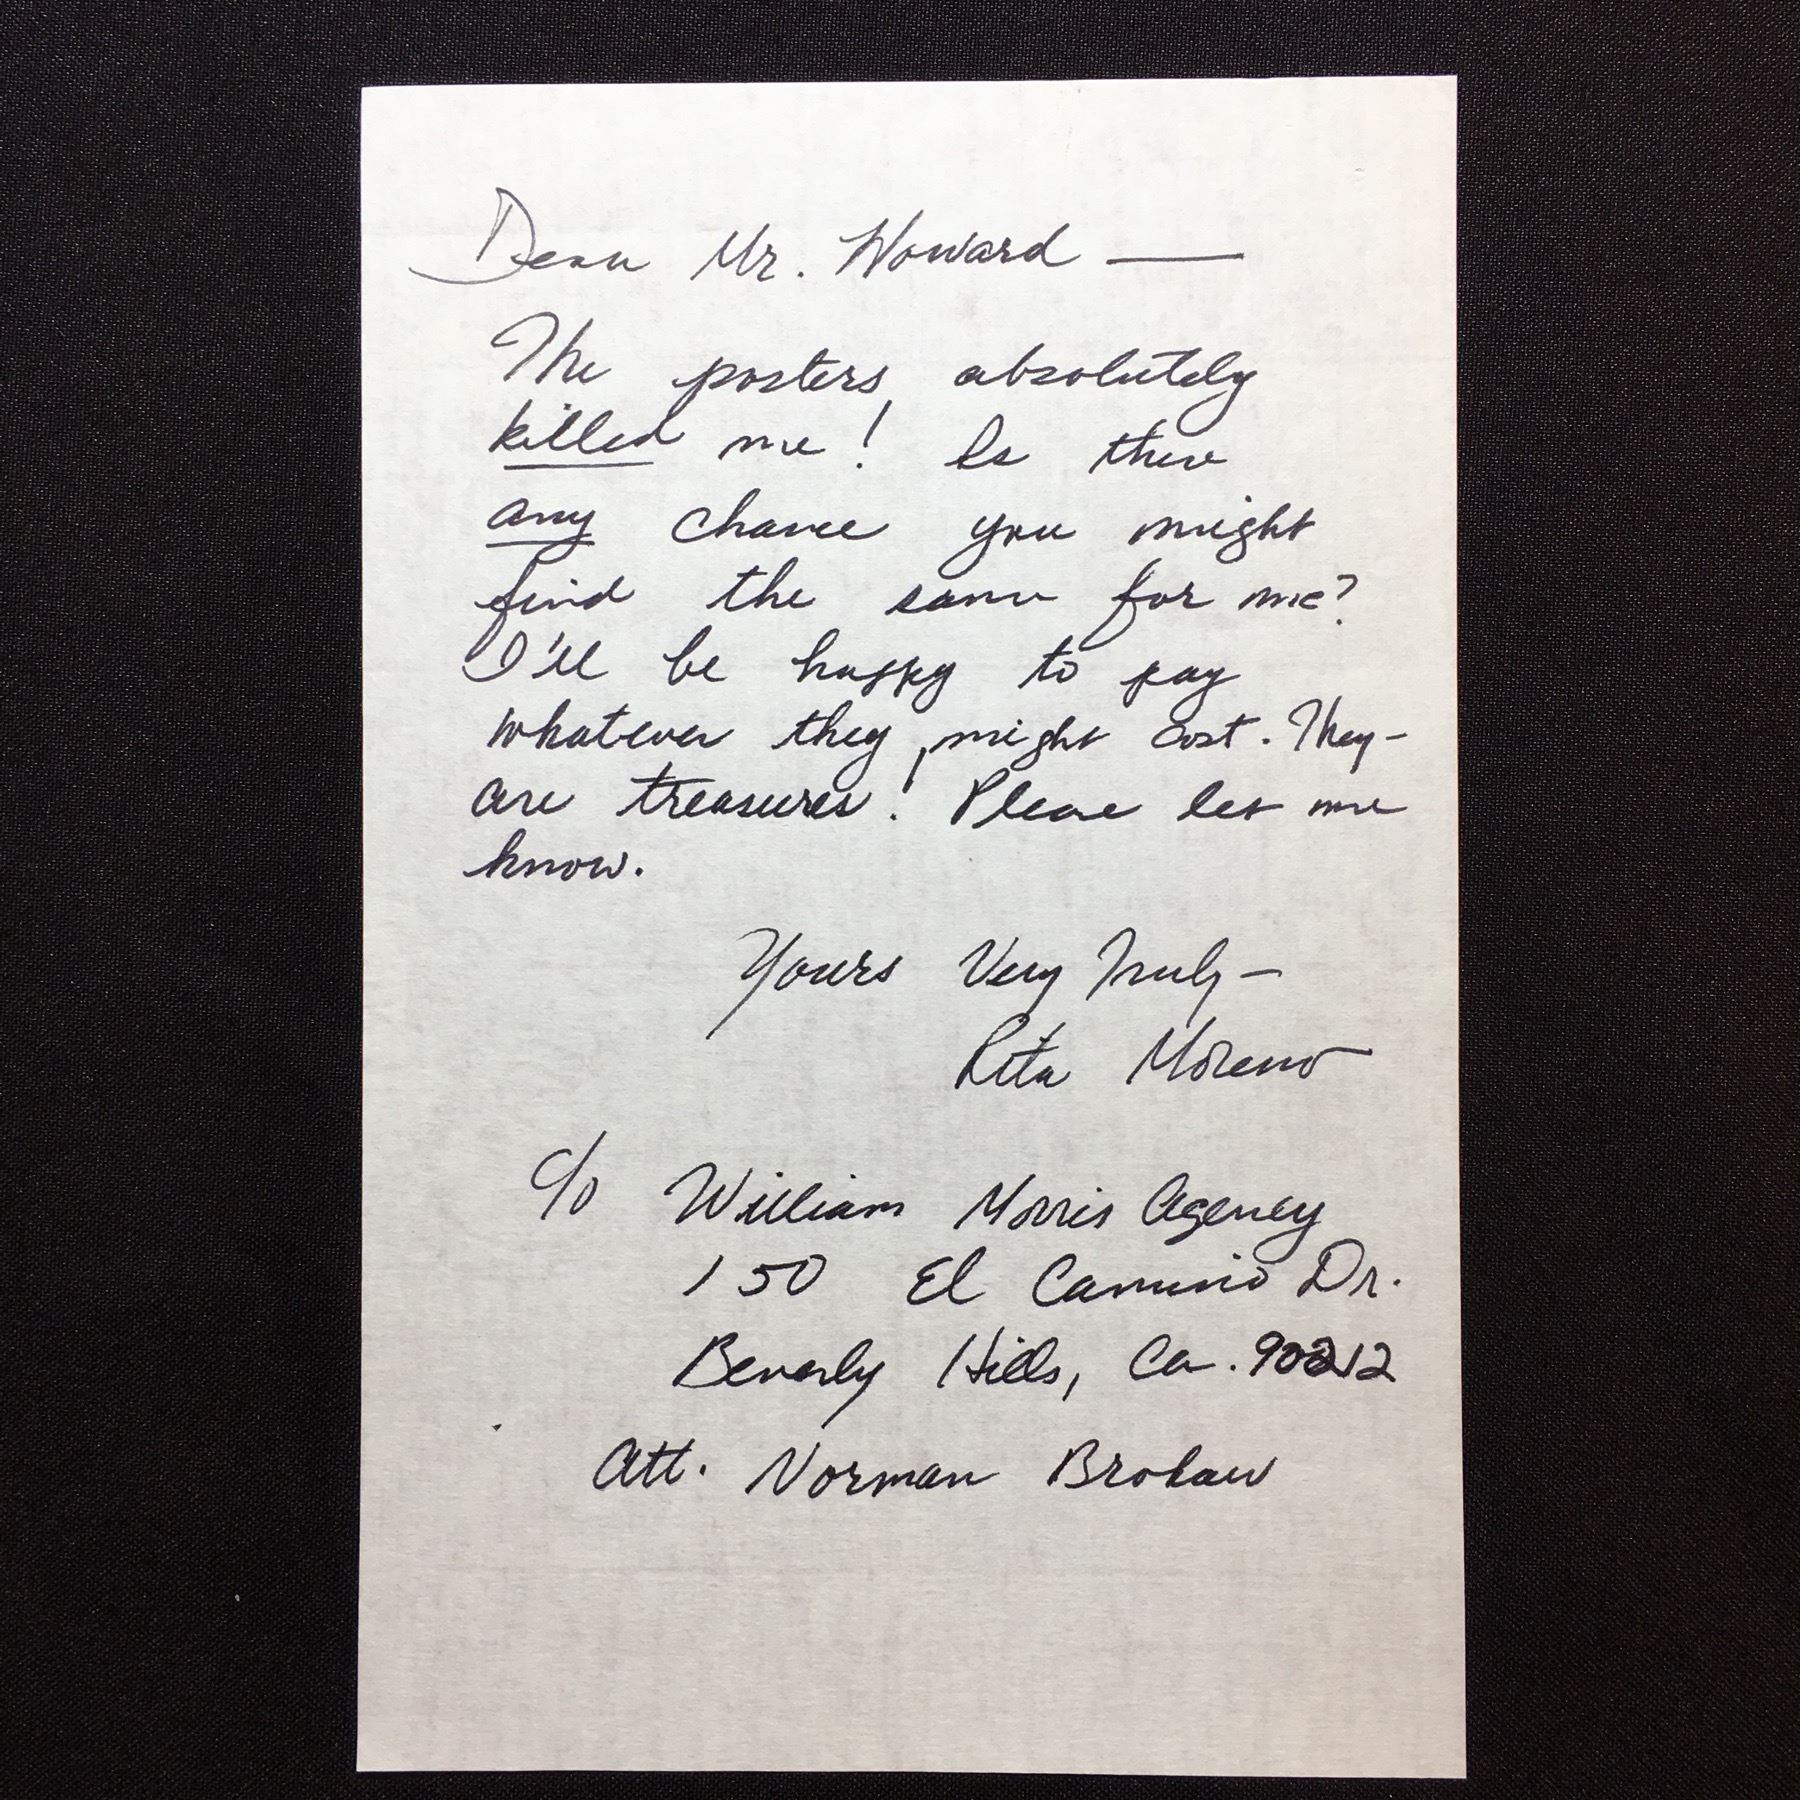 Dear Mr. Howard —
The posters absolutely
killed me! Is there
any chance you might
find the same for me?
I'll be happy to pay
whatever they might cost. They-
are treasures! Please let me
know.
Yours Very Truly -
Rita Moreno
c/o William Morris Agency
150 El Camino Dr.
Beverly Hills, Ca. 90212
Att. Norman Brokaw